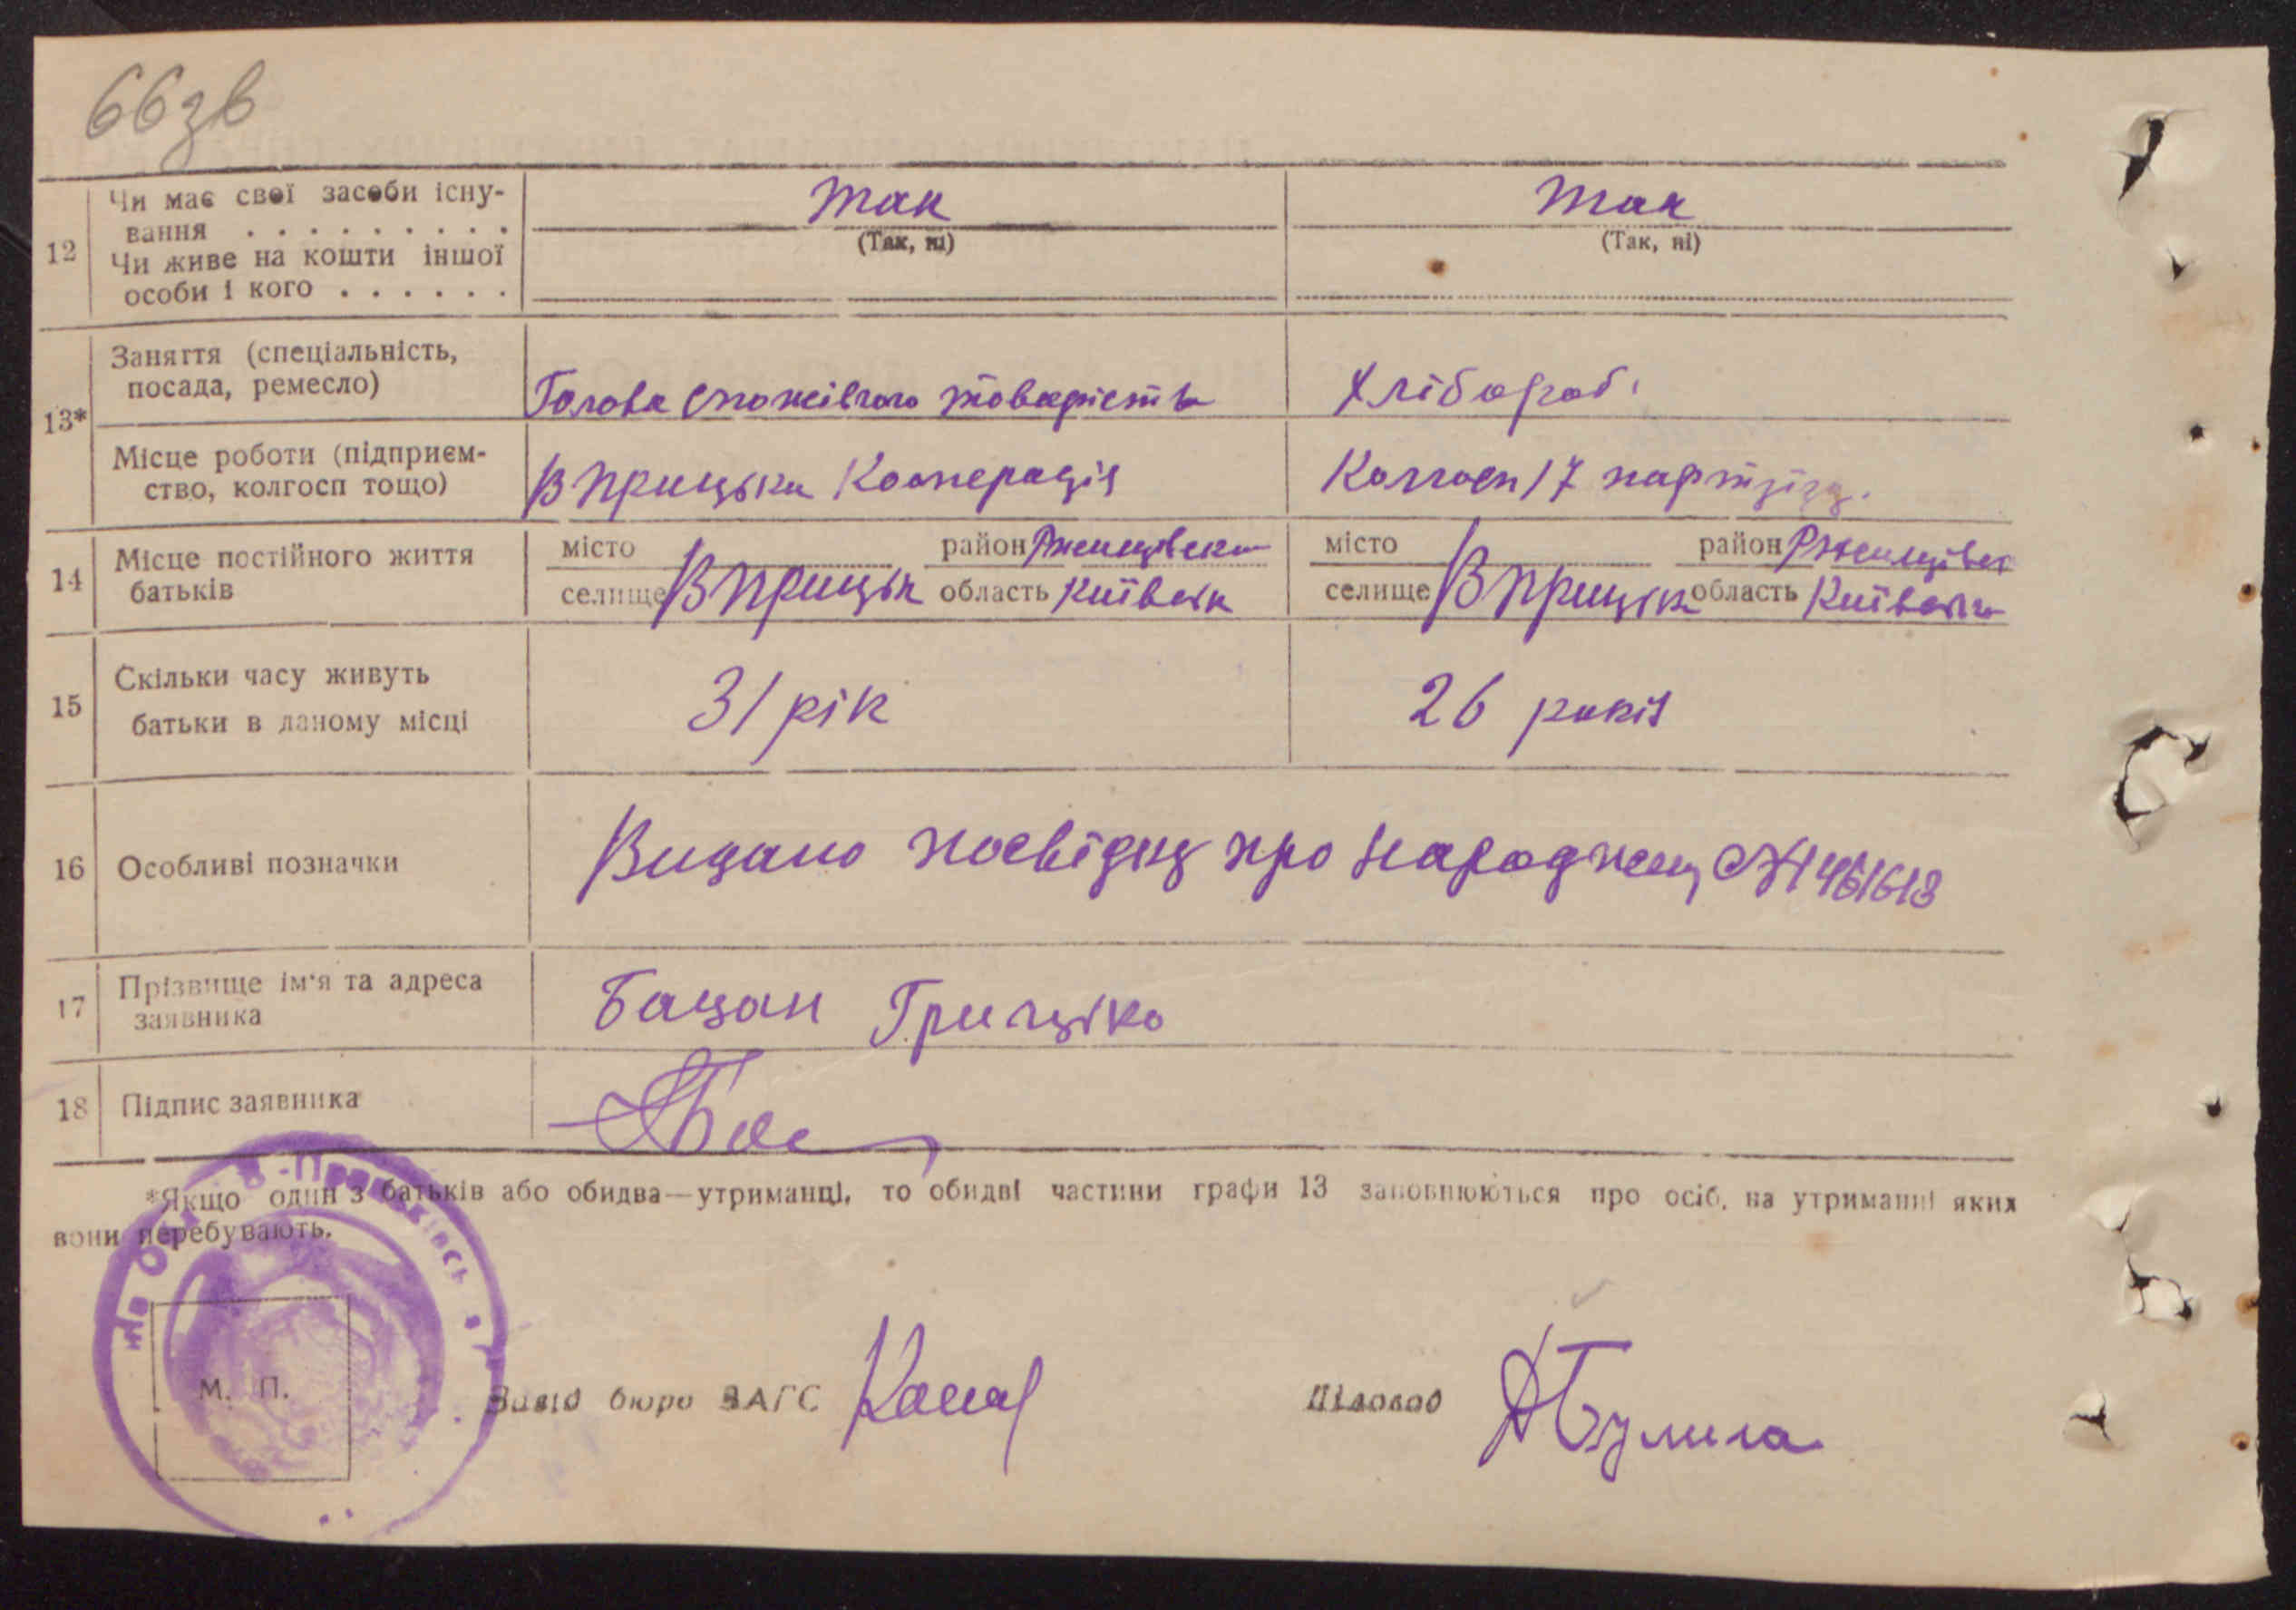 66зв
12
Чи має свої засоби існу-
вання . . . . . . . . .
Так
Так
(Так, ні)
(Так, ні)
Чи живе на кошти іншої
особи і кого . . . . . .
13*
Заняття (спеціальність,
посада, ремесло)
Голова споживчого товариства
Хлібороб.
Місце роботи (підприєм-
ство, колгосп тощо)
В Прицька Кооперація
Колгосп 17 партзїзд.
14
Місце постійного життя
батьків
місто район Ржищівськ
місто район Ржищівськ
селище В Прицьк область Київськ
селище В Прицьк область Київськ
15
Скільки часу живуть
батьки в даному місці
31 рік
26 років
16
Особливі позначки
Видано посвідку про народжен № 461618
17
Прізвище ім'я та адреса
заявника
Бацан Грицько
18
Підпис заявника
*Якщо один з батьків або обидва—утриманці, то обидві частини графи 13 заповнюються про осіб, на утриманні яких
вони перебувають.
М. П.
Завід бюро ЗАГС
Діловод